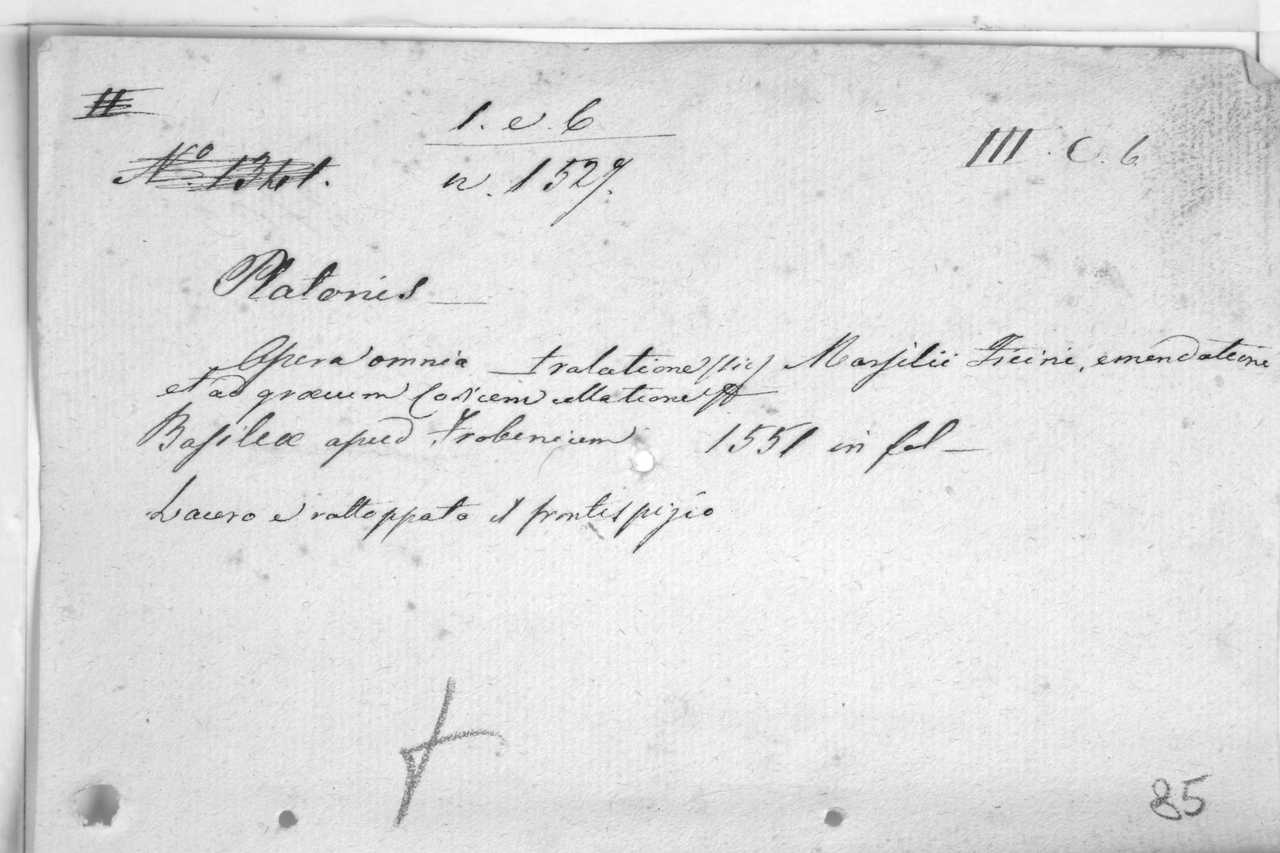 II
1. e. 6
III. C. 6
No. 1341.
n. 1527.
Platonis
Opera omnia tralatione (sic) Marsilii Ficini, emendatione
et ad græcum Codicem collatione
Basileæ apud Frobenium 1551 in fol
Lacero e rattoppato il frontespizio
85